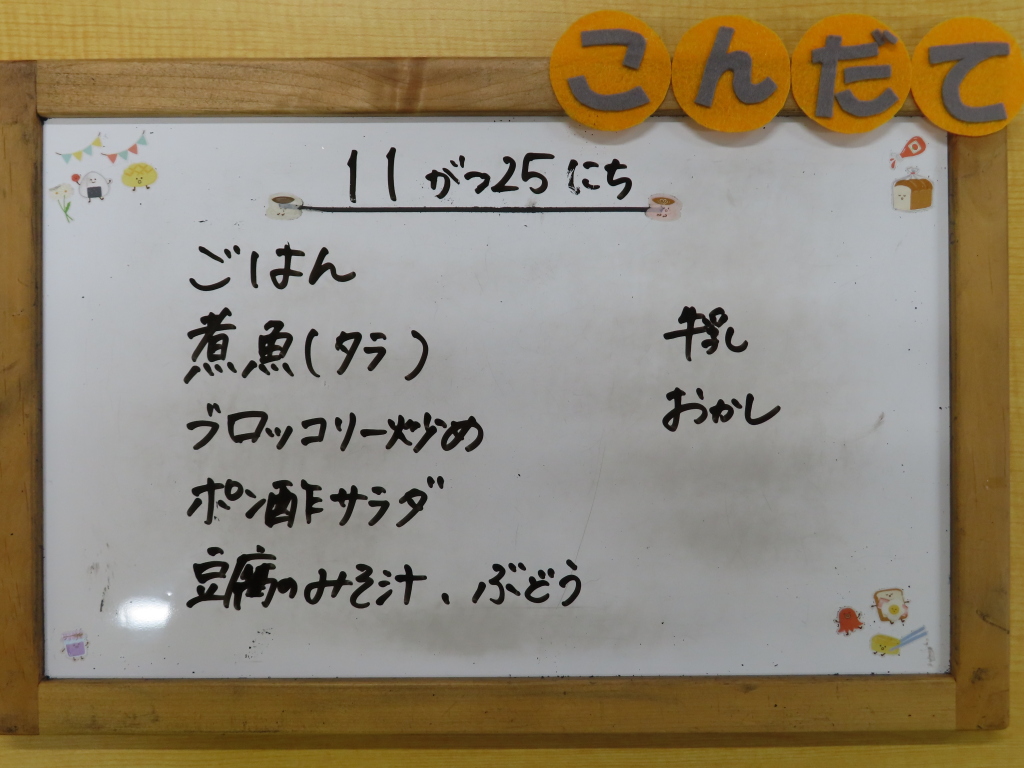 こんだて
11がつ25にち
ごはん
煮魚(タラ)
ブロッコリー炒め
ポン酢サラダ
豆腐のみそ汁、ぶどう
おかし